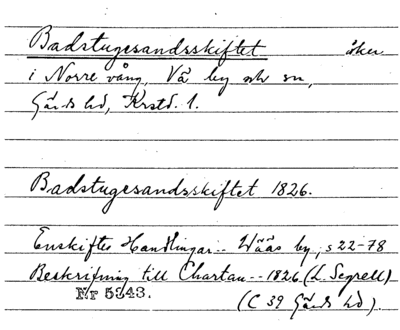 Badstugesandsskiftet åker
i Norre vång, Vä by och sn,
Gärds hd, Krstd. l.
Badstugesandsskiftet 1826.
Enskiftes Handlingar -- Wääs by, s 22-78
Beskrifning till Chartan -- 1826 (L. Segrell)
Nr 5343.
(C 39 Gärds hd).